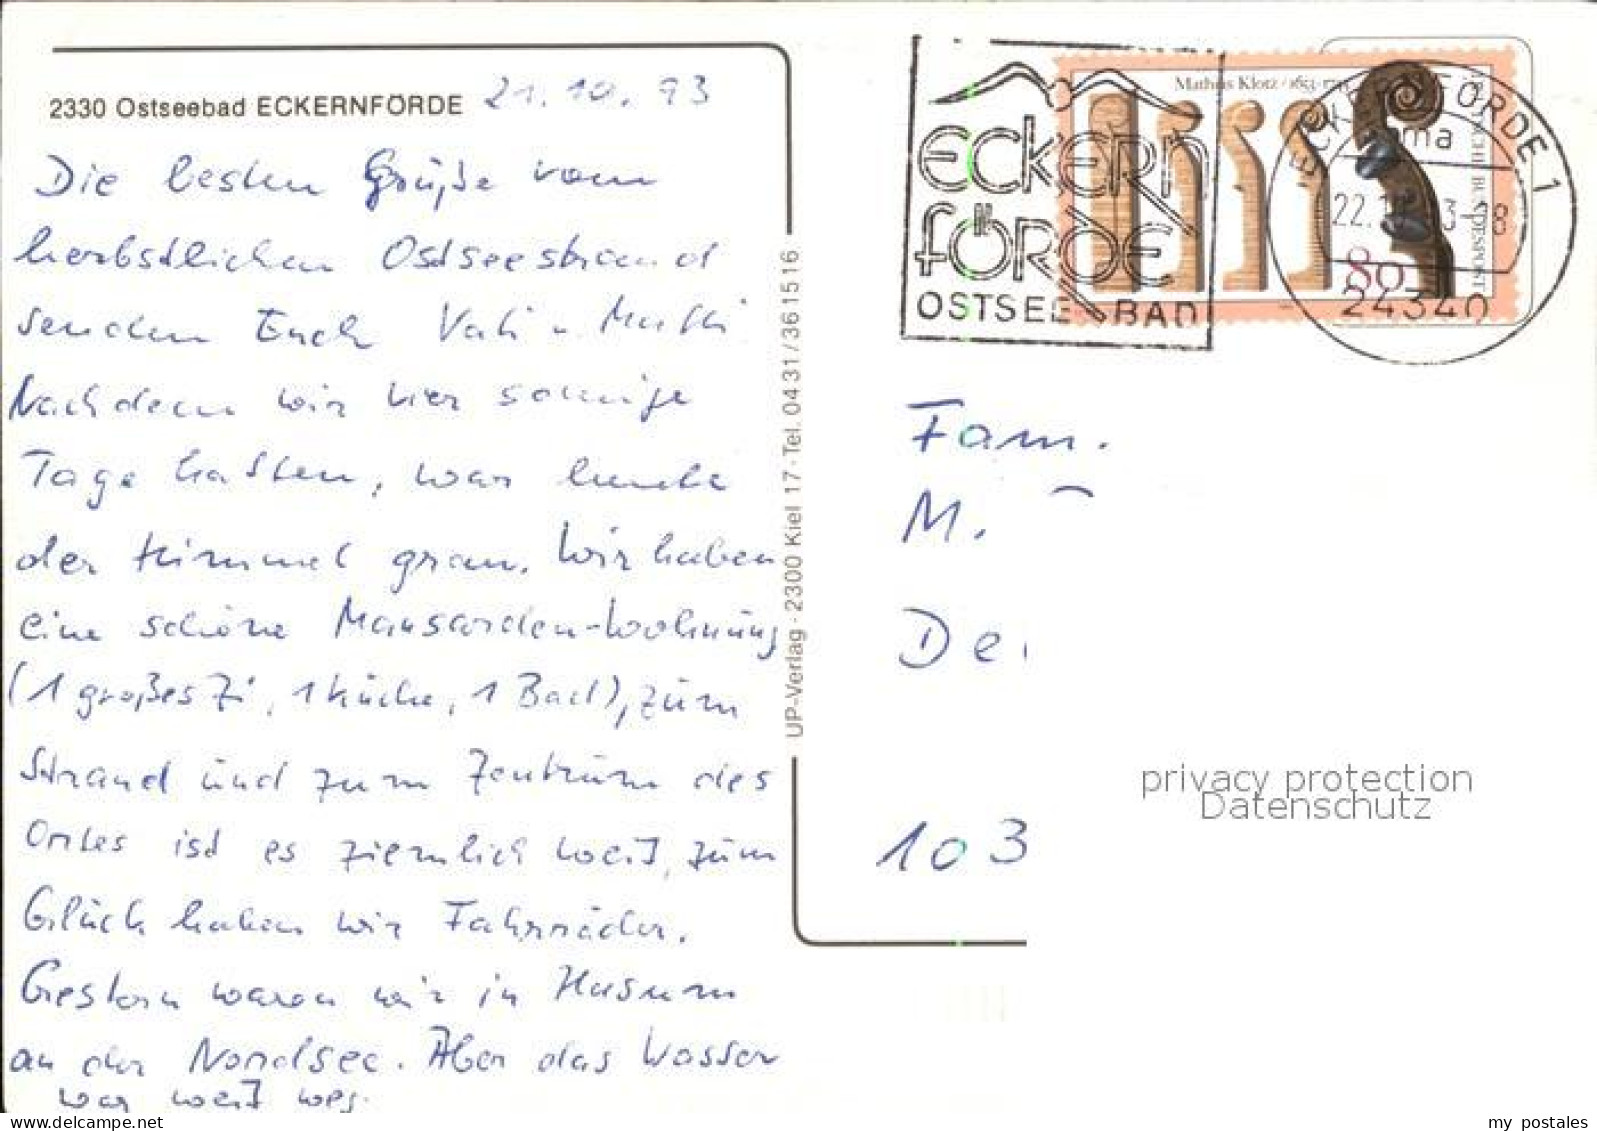 2330 Ostseebad ECKERNFÖRDE 21.10.93
Die besten Grüße vom
herbstlichen Ostseestrand
senden Euch Vati u. Mutti
Nachdem wir hier sonnige
Tage hatten, war heute
der Himmel grau. Wir haben
eine schöne Mansarden-Wohnung
(1 großes Zi, 1 Küche, 1 Bad), zum
Strand und zum Zentrum des
Ortes ist es ziemlich weit, zum
Glück haben wir Fahrräder.
Gestern waren wir in Husum
an der Nordsee. Aber das Wasser
war weit weg.
UP-Verlag · 2300 Kiel 17 · Tel. 0431/361516
ECKERN
FÖRDE
OSTSEE BAD
Mathias Klotz
80
DEUTSCHE BUNDESPOST
ECKERNFÖRDE 1
24340
Fam.
M.
De
103
privacy protection
Datenschutz
www.delcampe.net
my_postales